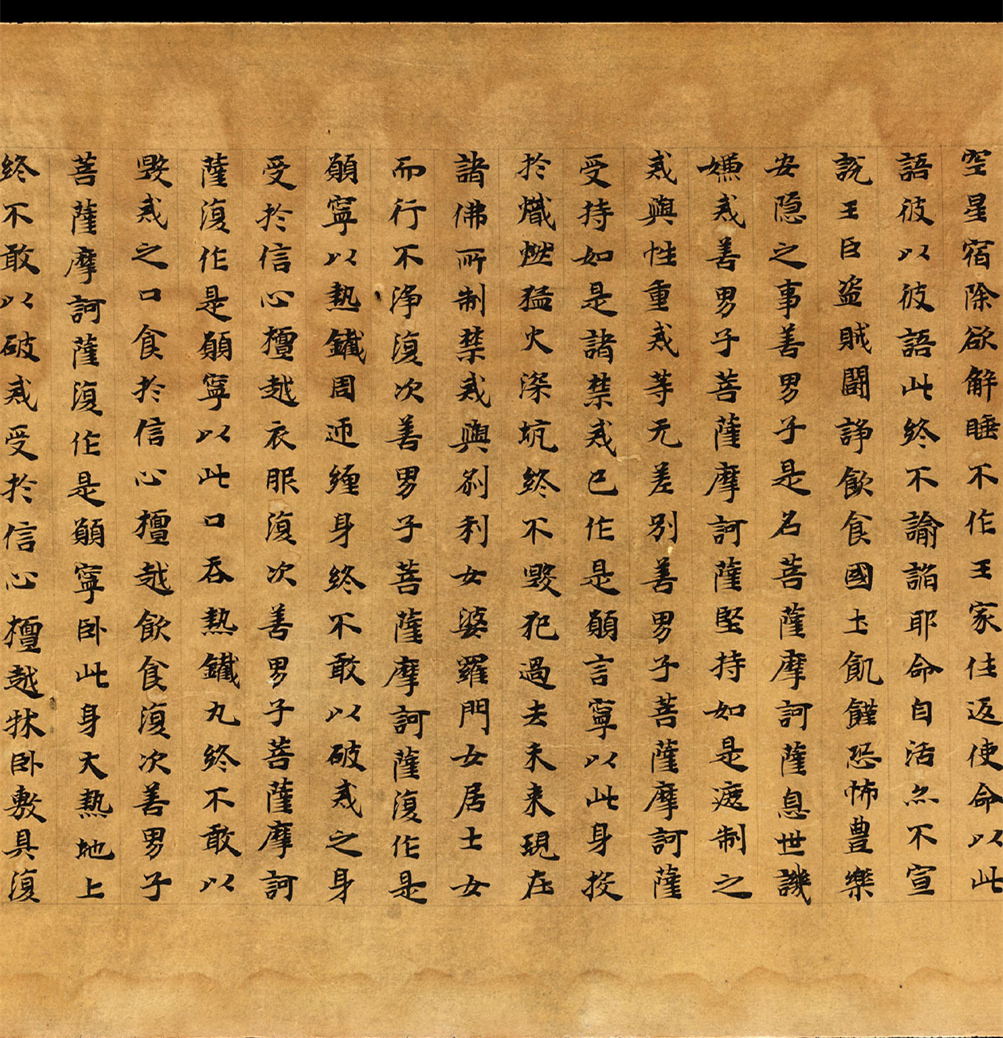 空星宿除欲解睡不作王家住返使命以此
語彼以彼語此終不諭諂耶命自活亦不宣
說王臣盜賊鬪諍飲食國土飢饉恐怖豊樂
安隱之事善男子是名菩薩摩訶薩息世譏
嫌戒善男子菩薩摩訶薩堅持如是遮制之
戒與性重戒等无差別善男子菩薩摩訶薩
受持如是諸禁戒已作是願言寧以此身投
於熾燃猛火深坑終不毀犯過去未來現在
諸佛所制禁戒與刹利女婆羅門女居士女
而行不淨復次善男子菩薩摩訶薩復作是
願寧以熱鐵周迊纏身終不敢以破戒之身
受於信心檀越衣服復次善男子菩薩摩訶
薩復作是願寧以此口吞熱鐵丸終不敢以
毀戒之口食於信心檀越飲食復次善男子
菩薩摩訶薩復作是願寧卧此身大熱地上
終不敢以破戒受於信心檀越牀卧敷具復